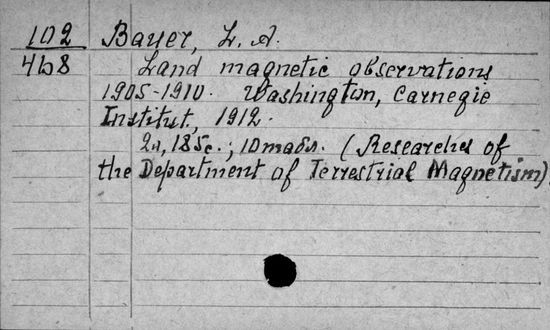 102 Bauer, L. A.
468 Land magnetic observations
1905-1910. Washington, Carnegie
Institut, 1912.
2л, 185с.; 10табл. (Researches of
the Department of Terrestrial Magnetism)